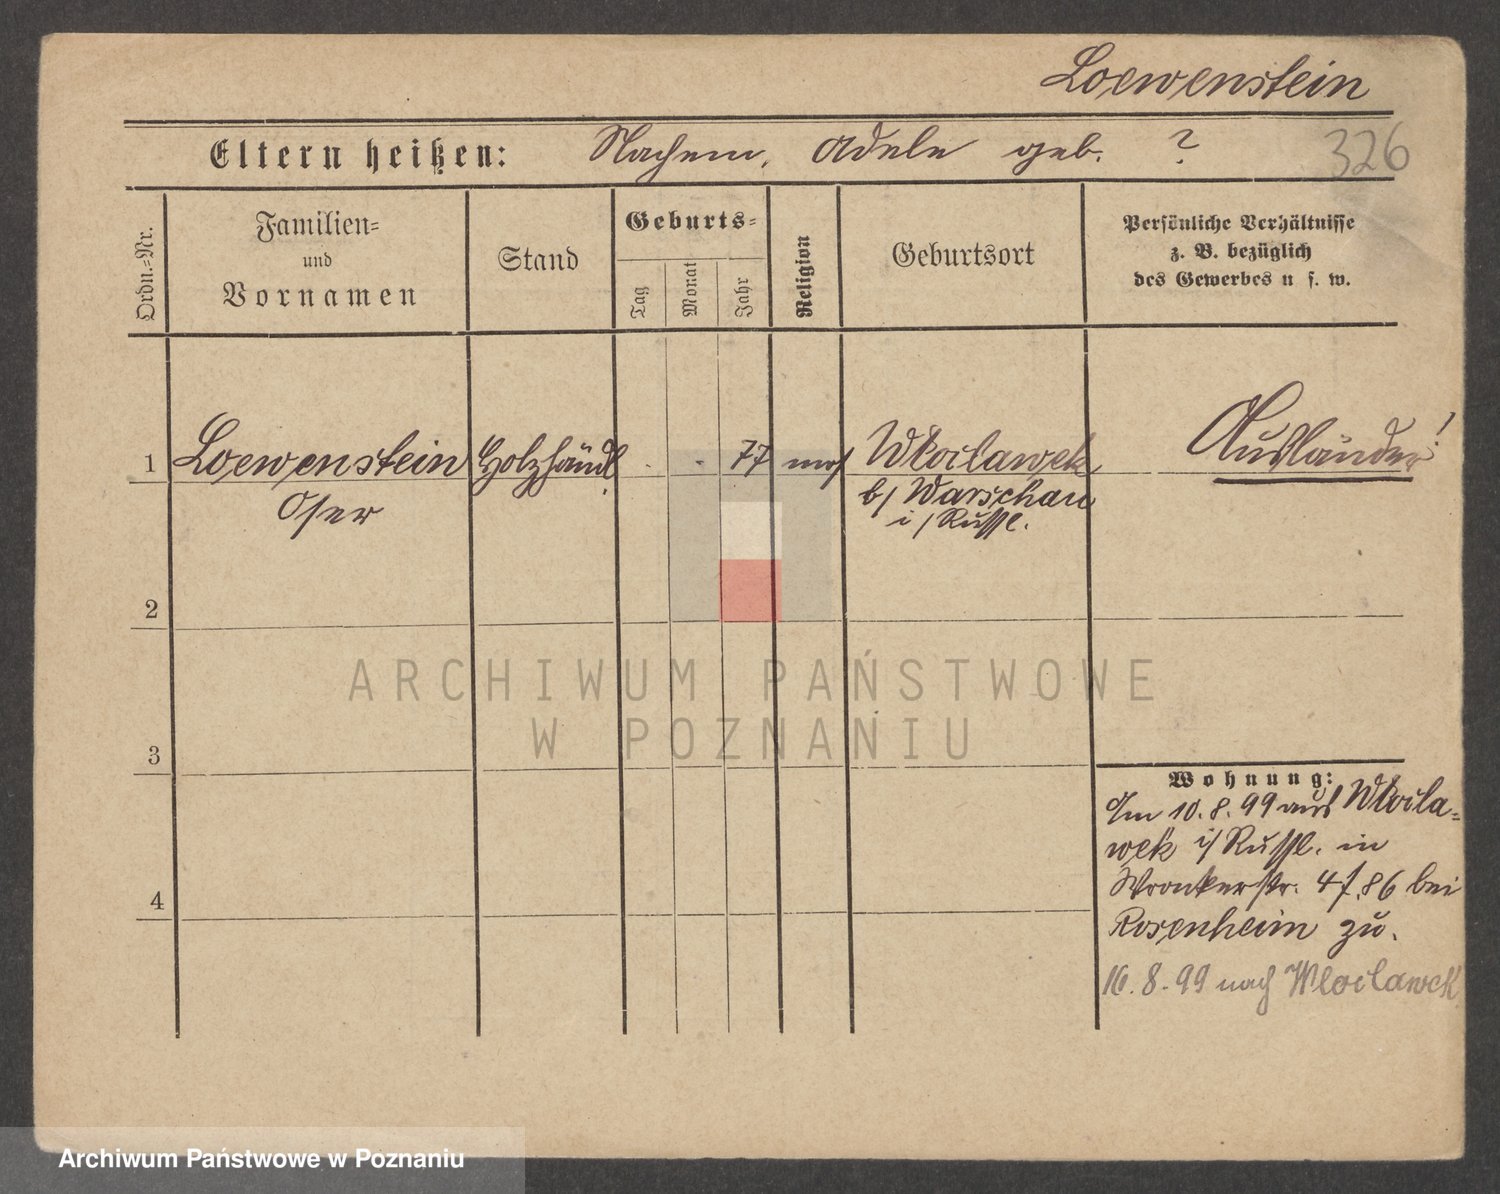 Loewenstein
Eltern heißen: Nachem, Adele geb. ?
326
Ordn.-Nr.
Familien-
und
Vornamen
Stand
Geburts-
Tag
Monat
Jahr
Religion
Geburtsort
Persönliche Verhältnisse
z. B. bezüglich
des Gewerbes u s. w.
1 Loewenstein Holzhändl. 77 mos Włocławek Ausländer!
Oser b/ Warschau
i/Russl.
2
3
4
ARCHIWUM PAŃSTWOWE
W POZNANIU
Wohnung:
Am 10.8.99 aus Włocła-
wek i/Russl. in
Wronkerstr. 4 bei
Rosenheim zu.
16.8.99 nach Wloclawek
Archiwum Państwowe w Poznaniu